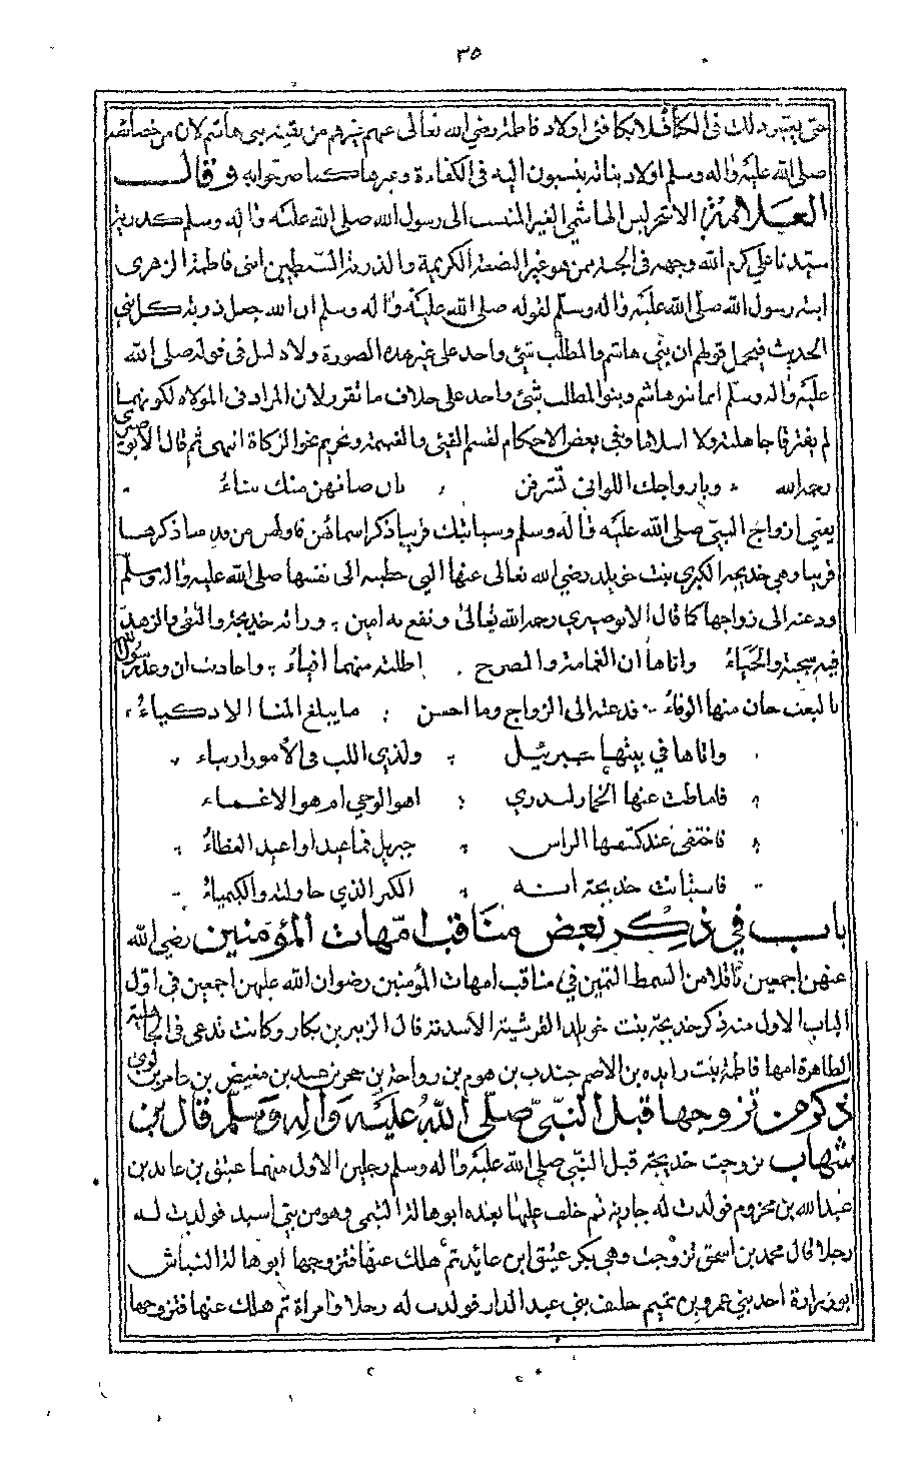 ٣٥
حتى يعتبر ذلك في الكفاءة فلا يكافئ اولاد فاطمة رضي الله تعالى عنهم غيرهم من بقية بني هاشم لان من خصائصه
صلى الله عليه واله وسلم اولاد بناته ينسبون اليه في الكفاءة وغيرها كما صرحوا به وقال
العلامة الاشخر ليس الهاشمي الغير المنتسب الى رسول الله صلى الله عليه واله وسلم كذرية
سيدنا علي كرم الله وجهه في الجنة ممن هو غير البضعة الكريمة والذرية السبطين ابني فاطمة الزهرى
ابنة رسول الله صلى الله عليه واله وسلم لقوله صلى الله عليه واله وسلم ان الله جعل ذرية كل نبي
الحديث فيحمل قولهم ان بني هاشم والمطلب شئ واحد على غير هذه الصورة ولا دليل في قوله صلى الله
عليه واله وسلم انما بنو هاشم وبنوا المطلب شئ واحد على خلاف ما تقرر لان المراد في الموالاه لكونهما
لم يفترقا جاهلية ولا اسلاما وفي بعض الاحكام لقسم الفيئ والغنيمة وتحريم نحو الزكاة انتهى ثم قال الابوصيري
رحمه الله وبازواجك اللواتي تشرفن بان صانهن منك بناءُ
يعني ازواج النبي صلى الله عليه واله وسلم وسياتيك قريبا ذكر اسمائهن فاولهن من ذكرها
قريبا وهي خديجة الكبرى بنت خويلد رضي الله تعالى عنها التي خطبته الى نفسها صلى الله عليه واله وسلم
ودعته الى زواجها كما قال الابوصيري رحمه الله تعالى ونفع به امين وراته خديجة والتقى والزهد
فيه سجية والحياءُ واتاها ان الغمامة والسرح اظلته منهما افياءُ واحاديث ان وعد رسول الله
بالبعث حان منها الوفاءُ فدعته الى الزواج وما احسن ما يبلغ المنا الاذكياءُ
واتاها في بيتها جبرئيل ولذي اللب في الأمور ارتياء
فاماطت عنها الخمار لتدري اهو الوحي ام هو الاغماء
فاختفى عند كشفها الراس جبريل فما عاد او اعيد الغطاءُ
فاستبانت خديجة انه الكنز الذي حاولته والكيمياءُ
باب في ذكر بعض مناقب امهات المؤمنين رضي الله
عنهن اجمعين ناقلا من السمط الثمين في مناقب امهات المؤمنين رضوان الله عليهن اجمعين في اول
الباب الاول منه ذكر خديجة بنت خويلد القرشية الاسدية قال الزبير بن بكار وكانت تدعى في الجاهلية
الطاهرة امها فاطمة بنت زايده بن الاصم جندب بن هرم بن رواحة بن حجر بن عبد بن معيض بن عامر بن لوي
ذكر من تزوجها قبل النبي صلى الله عليه واله وسلم قال بن
شهاب تزوجت خديجة قبل النبي صلى الله عليه واله وسلم رجلين الاول منهما عتيق بن عايذ بن
عبد الله بن مخزوم فولدت له جارية ثم خلف عليها بعده ابو هالة التميمي وهو من بني اسيد فولدت له
رجلا قال محمد بن اسحق تزوجت وهي بكر عتيق ابن عائد ثم هلك عنها فتزوجها ابو هالة النباش
ابو زرارة احد بني عمرو بن تميم حليف بني عبد الدار فولدت له رجلا وامراة ثم هلك عنها فتزوجها